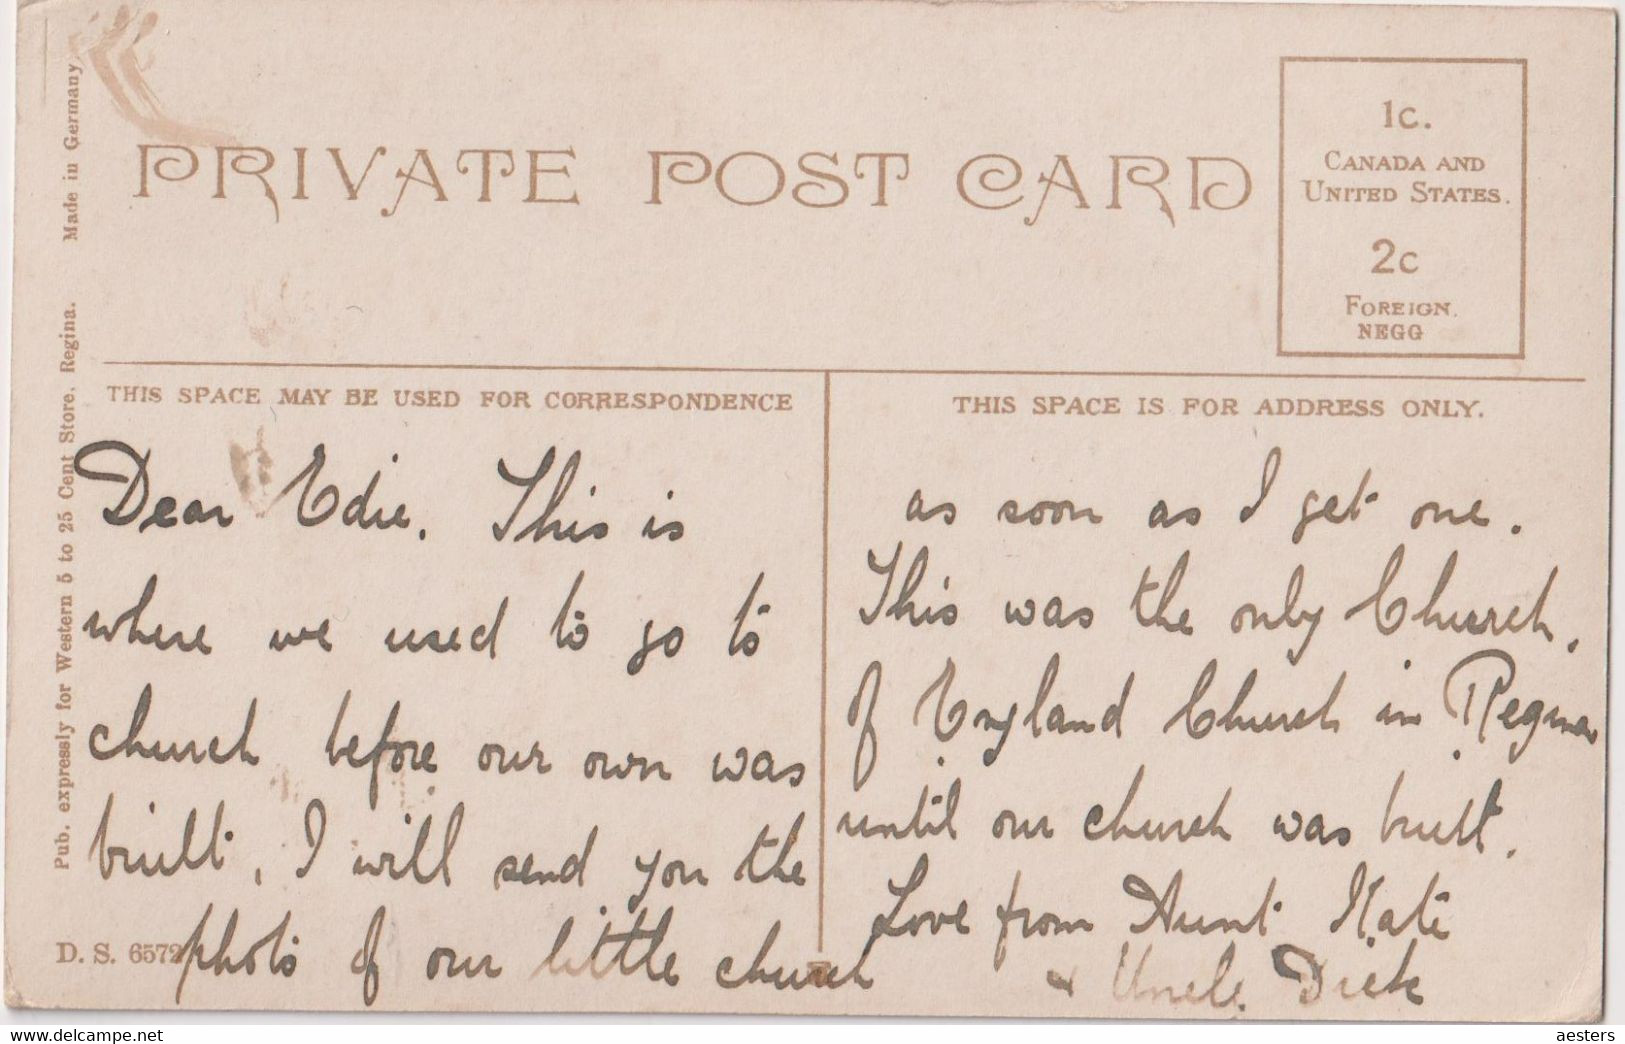 PRIVATE POST CARD
1c.
CANADA AND
UNITED STATES.
2c
FOREIGN.
NEGG
Pub. expressly for Western 5 to 25 Cent Store, Regina. Made in Germany
THIS SPACE MAY BE USED FOR CORRESPONDENCE
Dear Edie. This is
where we used to go to
church before our own was
built, I will send you the
photo of our little church
D. S. 6572
THIS SPACE IS FOR ADDRESS ONLY.
as soon as I get one.
This was the only Church,
of England Church in Regina
until our church was built.
Love from Aunt Kate
& Uncle Dick
www.delcampe.net
aesters